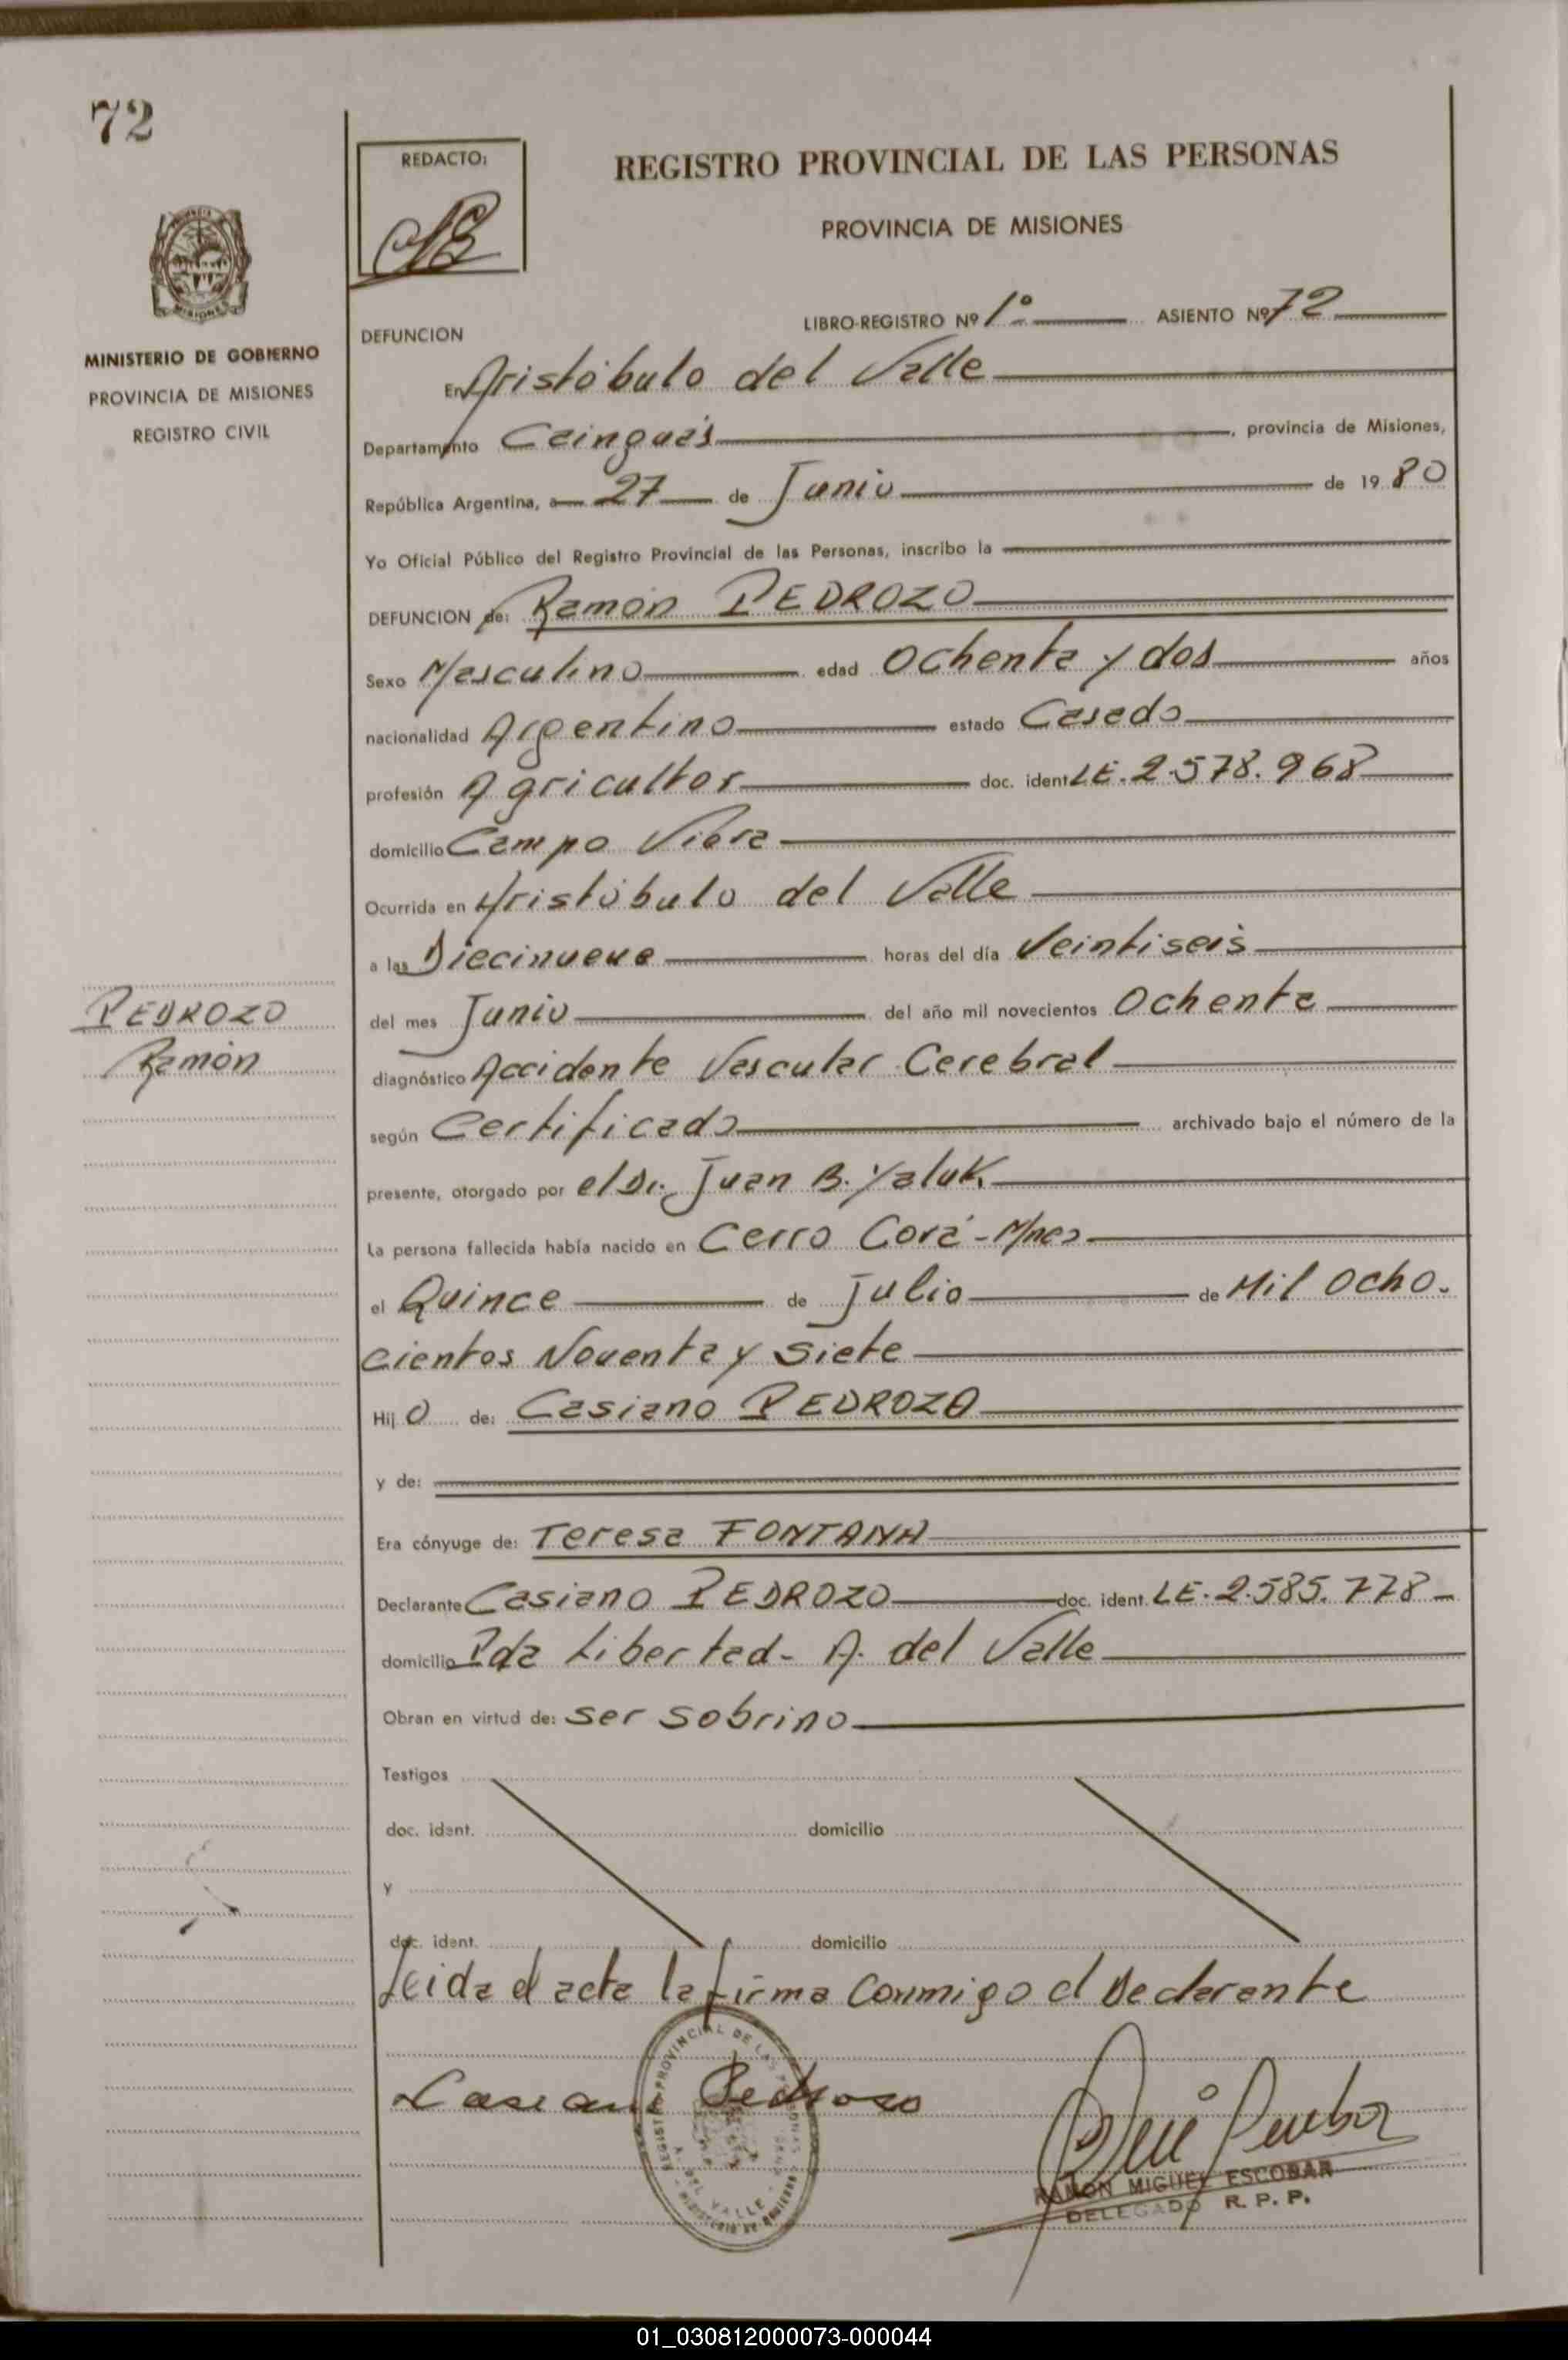 72
REDACTO:
REGISTRO PROVINCIAL DE LAS PERSONAS
PROVINCIA DE MISIONES
MISIONES
MINISTERIO DE GOBIERNO
PROVINCIA DE MISIONES
REGISTRO CIVIL
LIBRO-REGISTRO Nº 1º ASIENTO Nº 72
DEFUNCION
En Aristóbulo del Valle
Departamento Cainguás, provincia de Misiones,
República Argentina, a 27 de Junio de 19 80
Yo Oficial Público del Registro Provincial de las Personas, inscribo la
DEFUNCION de: Ramón PEDROZO
Sexo Masculino edad Ochenta y dos años
nacionalidad Argentino estado Casado
profesión Agricultor doc. ident LE. 2.578.968
domicilio Campo Viera
Ocurrida en Aristóbulo del Valle
a las Diecinueve horas del día Veintiseis
del mes Junio del año mil novecientos Ochenta
PEDROZO
Ramón
diagnóstico Accidente Vascular Cerebral
según Certificado archivado bajo el número de la
presente, otorgado por el Dr. Juan B. Yaluk
La persona fallecida había nacido en Cerro Corá - Mnes
el Quince de Julio de Mil Ocho.
cientos Noventa y Siete
Hij o de: Casiano PEDROZO
y de:
Era cónyuge de: Teresa FONTANA
Declarante Casiano PEDROZO doc. ident. LE. 2.585.778
domicilio Pda Libertad - A. del Valle
Obran en virtud de: ser sobrino
Testigos
doc. ident. domicilio
y
doc. ident. domicilio
Leida el acta la firma conmigo el Declarante
Casiano Pedrozo
REGISTRO PROVINCIAL DE LAS PERSONAS
A. DEL VALLE
RAMON MIGUEL ESCOBAR
DELEGADO R. P. P.
01_030812000073-000044